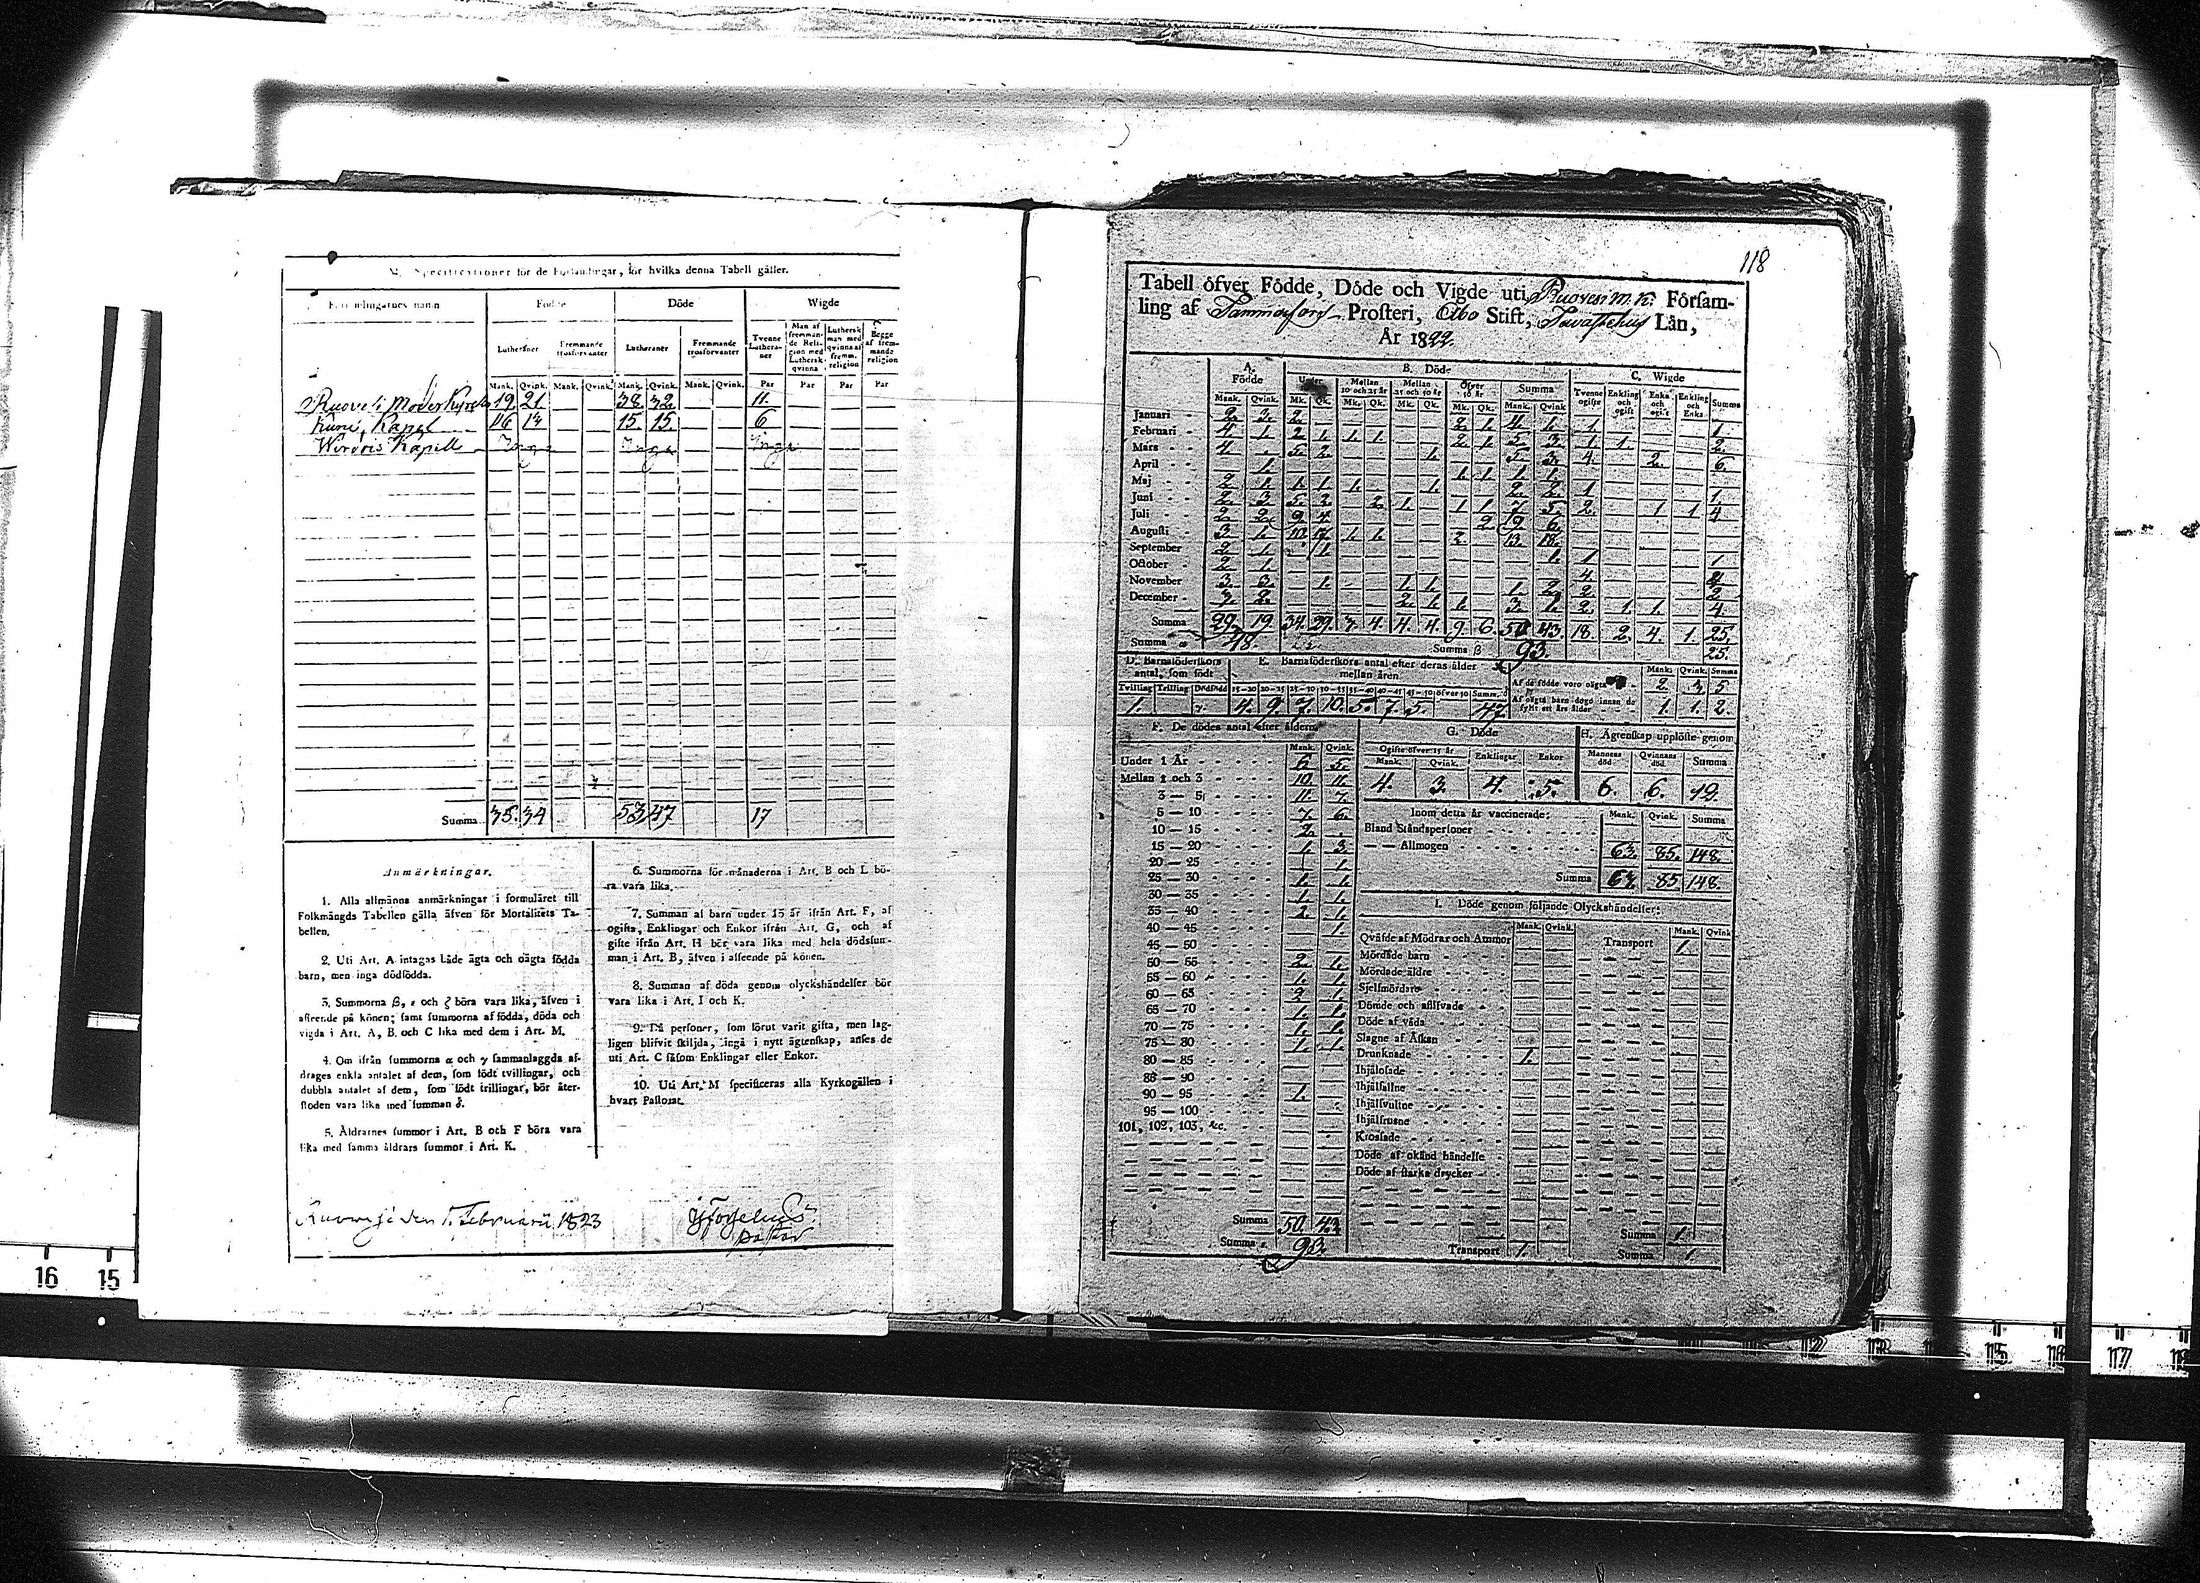 M. Specificationer för de Församlingar, för hvilka denna Tabell gäller.
Församlingarnes namn Födde Döde Wigde
Lutheraner Fremmande trosförvanter Lutheraner Fremmande trosförvanter Tvenne Lutheraner Man af fremmande Religion med Luthersk qvinna Luthersk man med qvinna af fremm. religion Begge af fremmande religion
Mank. Qvink. Mank. Qvink. Mank. Qvink. Mank. Qvink. Par Par Par Par
Ruovesi Moderkyrka 19 21 38 32 11
Kuru Kapel 16 13 15 15 6
Wirdois Kapell Inga Inga Inga
Summa 35. 34 53 47 17
Anmärkningar.
1. Alla allmänna anmärkningar i formuläret till
Folkmängds Tabellen gälla äfven för Mortalitets Ta-
bellen.
2. Uti Art. A intagas både ägta och oägta födda
barn, men inga dödfödda.
3. Summorna β, ε och ζ böra vara lika, äfven i
afseende på könen; samt summorna af födda, döda och
vigda i Art. A, B. och C lika med dem i Art. M.
4. Om ifrån summorna α och γ sammanlaggda af-
drages enkla antalet af dem, som födt tvillingar, och
dubbla antalet af dem, som födt trillingar, bör åter-
stoden vara lika med summan δ.
5. Åldrarnes summor i Art. B och F böra vara
lika med samma åldrars summor i Art. K.
6. Summorna för månaderna i Art. B och L bö-
ra vara lika.
7. Summan af barn under 15 år ifrån Art. F, af
ogifta, Enklingar och Enkor ifrån Art. G, och af
gifte ifrån Art. H bör vara lika med hela dödssum-
man i Art. B, äfven i afseende på könen.
8. Summan af döda genom olyckshändelser bör
vara lika i Art. I och K.
9. Då personer, som förut varit gifta, men lag-
ligen blifvit skiljda, ingå i nytt ägtenskap, anses de
uti Art. C såsom Enklingar eller Enkor.
10. Uti Art. M specificeras alla Kyrkogällen i
hvart Pastorat.
Ruovesi den 1. Februarii 1823
Pastor
118
Tabell öfver Födde, Döde och Vigde uti Ruovesi m.k. Församling af Tammerfors Prosteri, Åbo Stift, Tavastehus Län,
År 1822.
A. Födde B. Döde C. Wigde
Under Mellan 10 och 25 år Mellan 25 och 50 år Öfver 50 år Summa Tvenne ogifte Enkling och ogift Enka och ogift Enkling och Enka Summa
Mank. Qvink. Mk. Qk. Mk. Qk. Mk. Qk. Mk. Qk. Mank. Qvink
Januari 2. 3. 2. 2. 1. 4. 1. 1. 1.
Februari 4. 1. 2. 1. 1. 1. 2. 1. 5. 3. 1. 1. 2.
Mars 4. 5. 2. 1. 5. 3. 4. 2. 6.
April 1. 1. 1. 1. 1.
Maj 2. 1. 1. 1. 1. 1. 2. 2. 1. 1.
Juni 2. 3. 5. 2. 2. 1. 1. 1. 7. 5. 2. 1. 1. 4
Juli 2. 2. 9. 4. 2.
Augusti 3. 1. 1. 1. 2. 13. 18.
September 2. 1. 1. 1. 1. 1
October 2. 1. 4.
November 3. 3. 1. 1. 1. 1. 2. 2. 2
December 2. 2. 1. 1. 3. 1. 2. 1. 1. 4.
Summa 29. 19. 34. 29. 3. 4. 4. 4. 9. 6. 50. 43. 18. 2. 4. 1. 25.
Summa α 48. Summa β 93. 25.
D. Barnaföderskors antal, som födt E. Barnaföderskors antal efter deras ålder mellan åren
Tvilling Trilling Dödfödd 15—20 20—25 25—30 30—35 35—40 40—45 45—50 öfver 50 Summa δ
1. 4. 9. 7. 10. 5. 7. 5. 47
Mank. Qvink. Summa
Af de födde voro oägta 2. 3. 5
Af oägta barn dogo innan de fyllt ett års ålder 1. 1. 2.
F. De dödes antal efter åldern
Mank. Qvink.
Under 1 År 6 5.
Mellan 1 och 3 10. 11.
3 — 5 11. 7.
5 — 10 7. 6.
10 — 15 2.
15 — 20 1. 3.
20 — 25 1.
25 — 30 1. 1.
30 — 35 1. 1.
35 — 40 2. 1.
40 — 45 1.
45 — 50
50 — 55 2. 1.
55 — 60 1. 1.
60 — 65 2. 1.
65 — 70 1. 1.
70 — 75 1. 1.
75 — 80 1. 1.
80 — 85
85 — 90
90 — 95 1.
95 — 100
101, 102, 103, &c.
Summa 50. 43.
Summa ε 93.
G. Döde
Ogifte öfver 15 år Enklingar Enkor
Mank. Qvink.
4. 3. 4. 5.
H. Ägtenskap upplöste genom
Mannens död Qvinnans död. Summa
6. 6. 12.
Inom detta år vaccinerade: Mank. Qvink. Summa
Bland Ståndspersoner
— — Allmogen 63. 85. 148.
Summa 63. 85 148.
I. Döde genom följande Olyckshändelser:
Mank. Qvink. Mank. Qvink
Qväfde af Mödrar och Ammor Transport 1.
Mördade barn
Mördade äldre
Sjelfmördare
Dömde och aflifvade
Döde af våda
Slagne af Åskan
Drunknade 1.
Ihjälosade
Ihjälfallne
Ihjälfrusne
Krossade
Döde af okänd händelse
Döde af starka drycker
Summa 1.
Transport 1. Summa 1.